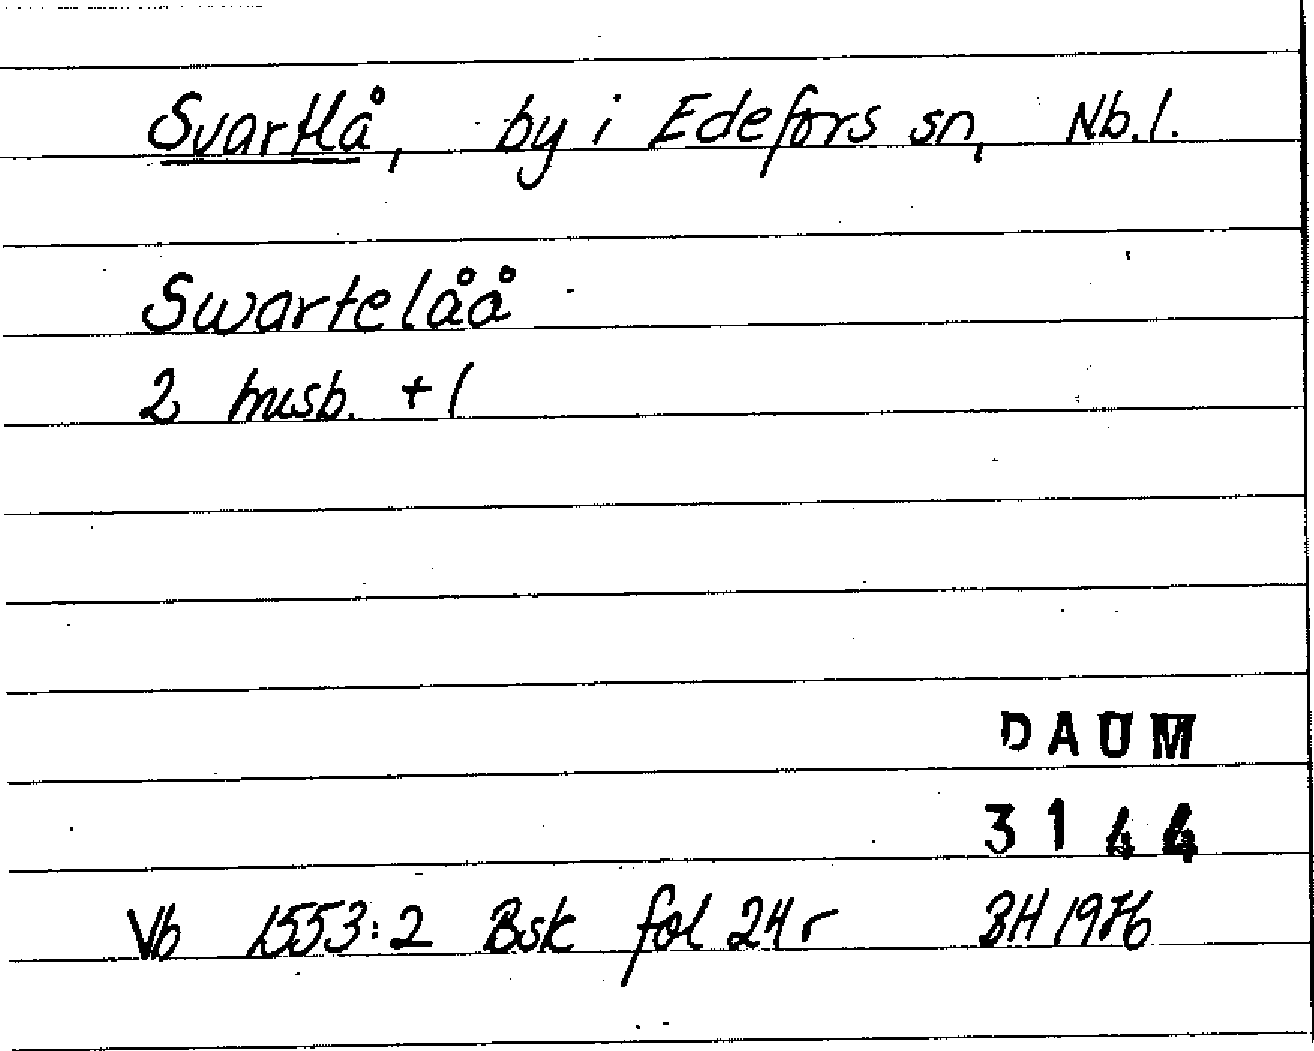 Svartlå, by i Edefors sn, Nb.l.
Swartelåå
2 husb. + 1
DAUM
3144
Vb 1553:2 Bsk fol 24 r BH 1976